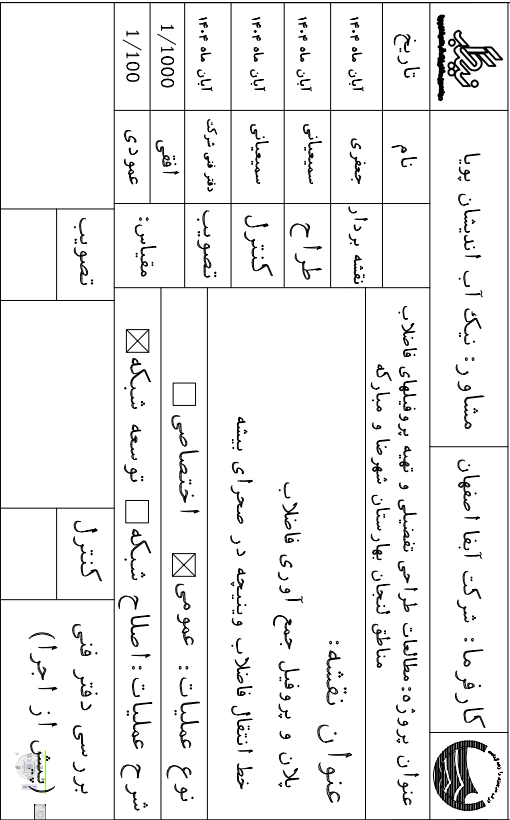 کارفرما: شرکت آبفا اصفهان
مشاور: نیک آب اندیشان پویا
عنوان پروژه: مطالعات طراحی تفصیلی و تهیه پروفیلهای فاضلاب
مناطق لنجان بهارستان شهرضا و مبارکه
عنوان نقشه:
پلان و پروفیل جمع آوری فاضلاب
خط انتقال فاضلاب وینیچه در صحرای بیشه
نوع عملیات: عمومی اختصاصی
شرح عملیات: اصلاح شبکه توسعه شبکه
نام تاریخ
نقشه بردار جعفری آبان ماه ۱۴۰۴
طراح سمیعیانی آبان ماه ۱۴۰۴
کنترل سمیعیانی آبان ماه ۱۴۰۴
تصویب دفتر فنی شرکت آبان ماه ۱۴۰۴
مقیاس:
افقی 1/1000
عمودی 1/100
بررسی دفتر فنی
(پیش از اجرا)
کنترل
تصویب